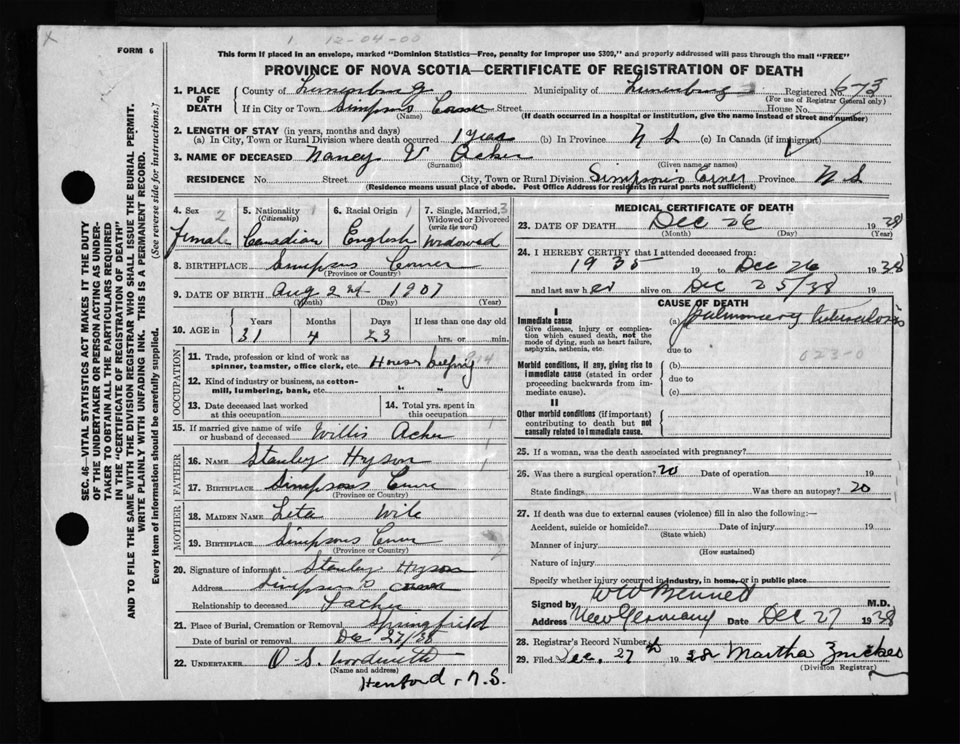 x
1 12-04-00
FORM 6
This form if placed in an envelope, marked "Dominion Statistics—Free, penalty for improper use $300," and properly addressed will pass through the mail "FREE"
PROVINCE OF NOVA SCOTIA—CERTIFICATE OF REGISTRATION OF DEATH
SEC. 46—VITAL STATISTICS ACT MAKES IT THE DUTY
OF THE UNDERTAKER OR PERSON ACTING AS UNDER-
TAKER TO OBTAIN ALL THE PARTICULARS REQUIRED
IN THE "CERTIFICATE OF REGISTRATION OF DEATH"
AND TO FILE THE SAME WITH THE DIVISION REGISTRAR WHO SHALL ISSUE THE BURIAL PERMIT.
WRITE PLAINLY WITH UNFADING INK. THIS IS A PERMANENT RECORD.
Every item of information should be carefully supplied. (See reverse side for instructions.)
1. PLACE OF DEATH
County of Lunenburg Municipality of Lunenburg Registered No. 673
(For use of Registrar General only)
If in City or Town Simpsons Corner Street House No.
(Name) (If death occurred in a hospital or institution, give the name instead of street and number)
2. LENGTH OF STAY (in years, months and days)
(a) In City, Town or Rural Division where death occurred 1 year (b) In Province N S (c) In Canada (if immigrant)
3. NAME OF DECEASED Nancy V Acker
(Surname) (Given name or names)
RESIDENCE No. Street City, Town or Rural Division Simpsons Corner Province N S
(Residence means usual place of abode. Post Office Address for residents in rural parts not sufficient)
4. Sex 2 5. Nationality 1 6. Racial Origin 1 7. Single, Married, 3
(Citizenship) Widowed or Divorced
(write the word)
female Canadian English Widowed
8. BIRTHPLACE Simpsons Corner
(Province or Country)
9. DATE OF BIRTH Aug 2nd 1907
(Month) (Day) (Year)
10. AGE in Years Months Days If less than one day old
31 4 23 hrs. or min.
OCCUPATION
11. Trade, profession or kind of work as
spinner, teamster, office clerk, etc. House keeping 914
12. Kind of industry or business, as cotton-
mill, lumbering, bank, etc. " "
13. Date deceased last worked
at this occupation
14. Total yrs. spent in
this occupation
15. If married give name of wife
or husband of deceased Willis Acker
FATHER
16. NAME Stanley Hyson
17. BIRTHPLACE Simpsons Corner
(Province or Country)
MOTHER
18. MAIDEN NAME Leta Wile
19. BIRTHPLACE Simpsons Corner
(Province or Country)
20. Signature of informant Stanley Hyson
Address Simpsons Corner
Relationship to deceased Father
21. Place of Burial, Cremation or Removal Springfield
Date of burial or removal Dec 27/38
22. UNDERTAKER O S
(Name and address)
N.S.
MEDICAL CERTIFICATE OF DEATH
23. DATE OF DEATH Dec 26 1938
(Month) (Day) (Year)
24. I HEREBY CERTIFY that I attended deceased from:
1935 19 to Dec 26 1938
and last saw her alive on Dec 25/38 19
CAUSE OF DEATH
I
Immediate cause (a) pulmonary tuberculosis
Give disease, injury or complica-
tion which caused death, not the
mode of dying, such as heart failure,
asphyxia, asthenia, etc. due to
023-0
Morbid conditions, if any, giving rise to (b)
immediate cause (stated in order due to
proceeding backwards from im-
mediate cause). (c)
II
Other morbid conditions (if important)
contributing to death but not
causally related to immediate cause.
25. If a woman, was the death associated with pregnancy?
26. Was there a surgical operation? no Date of operation 19
State findings Was there an autopsy? no
27. If death was due to external causes (violence) fill in also the following:—
Accident, suicide or homicide? Date of injury 19
(State which)
Manner of injury
(How sustained)
Nature of injury
Specify whether injury occurred in industry, in home, or in public place
Signed by W W Bennett M.D.
Address New Germany Date Dec 27 1938
28. Registrar's Record Number
29. Filed Dec. 27th 1938 Martha Zwicker
(Division Registrar)